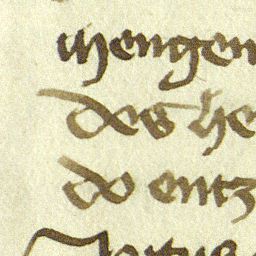 mengen
des he
do entz